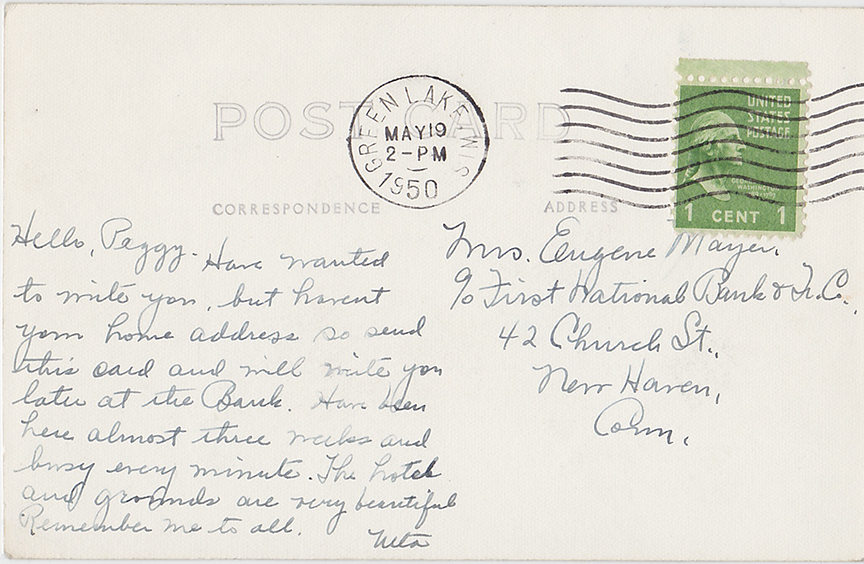 POST CARD
GREEN LAKE, WIS
MAY 19
2-PM
1950
UNITED
STATES
POSTAGE
GEORGE
WASHINGTON
1 CENT 1
CORRESPONDENCE
ADDRESS
Hello, Peggy. Have wanted
to write you, but havent
your home address so send
this card and will write you
later at the Bank. Have been
here almost three weeks and
busy every minute. The hotel
and grounds are very beautiful
Remember me to all.
Meta
Mrs. Eugene Mayer,
% First National Bank & Tr. Co.,
42 Church St.,
New Haven,
Conn.